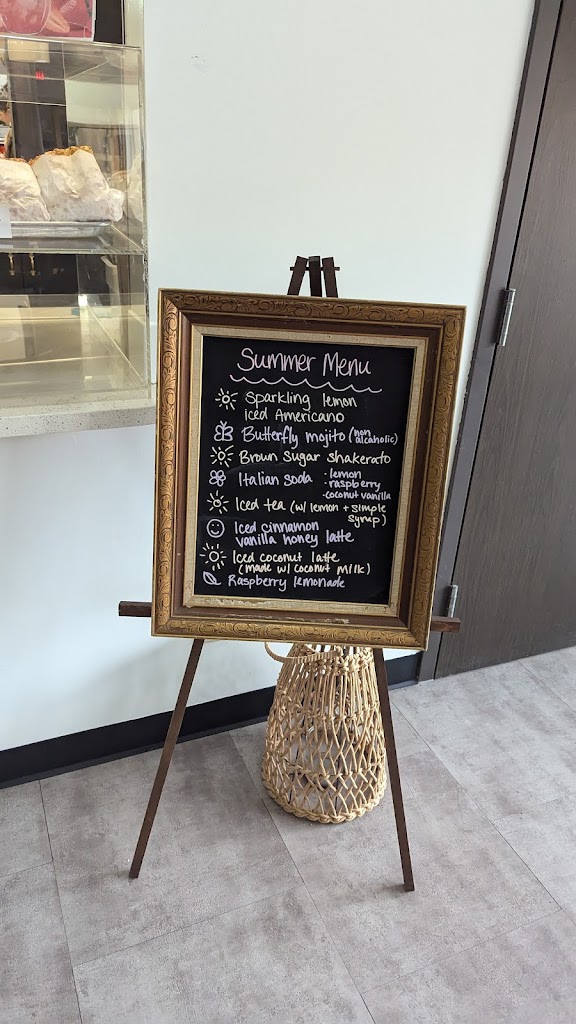 Summer Menu
Sparkling lemon
iced Americano
Butterfly mojito (non alcaholic)
Brown Sugar shakerato
Italian soda - lemon
- raspberry
- coconut vanilla
Iced tea (w/ lemon + simple
syrup)
Iced cinnamon
vanilla honey latte
Iced coconut latte
(made w/ coconut milk)
Raspberry lemonade